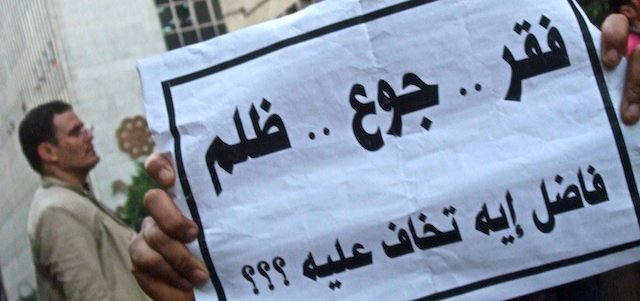 فقر .. جوع .. ظلم
فاضل إيه تخاف عليه ؟؟؟